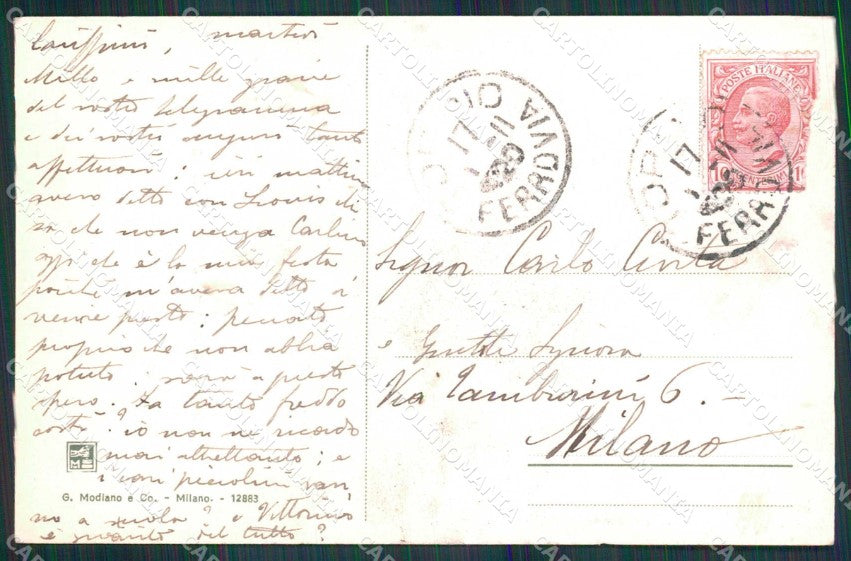 Carissimi, martedì
Mille e mille grazie
del vostro telegramma
e dei vostri auguri tanto
affettuosi: ieri mattina
avevo detto con
che non venga Carlino
oggi che è la mia festa
poiché m'aveva detto di
venire presto: peccato
proprio che non abbia
potuto: sarà a presto
spero. Fa tanto freddo
costì? io non ne ricordo
mai altrettanto; e
i cari piccolini van
no a scuola? e Vittorino
è guarito del tutto?
G. Modiano e Co. - Milano. - 12883
1
FERROVIA
17
11
POSTE ITALIANE
10
FERROVIA
17
Signor Carlo Civita
e Gentile Signora
Via Tamburini 6. -
Milano
CARTOLINOMANIA